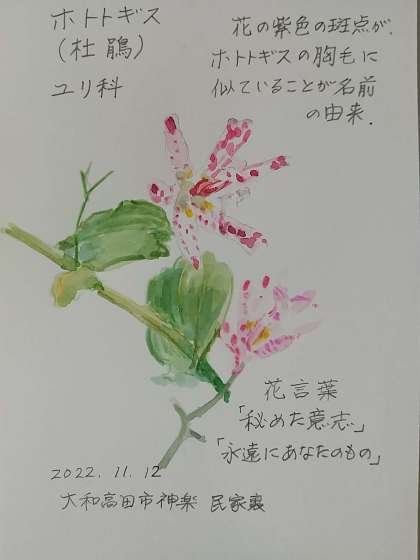 ホトトギス
(杜鵑)
ユリ科
花の紫色の斑点が、
ホトトギスの胸毛に
似ていることが名前
の由来.
花言葉
「秘めた意志」
「永遠にあなたのもの」
2022.11.12
大和高田市神楽 民家裏